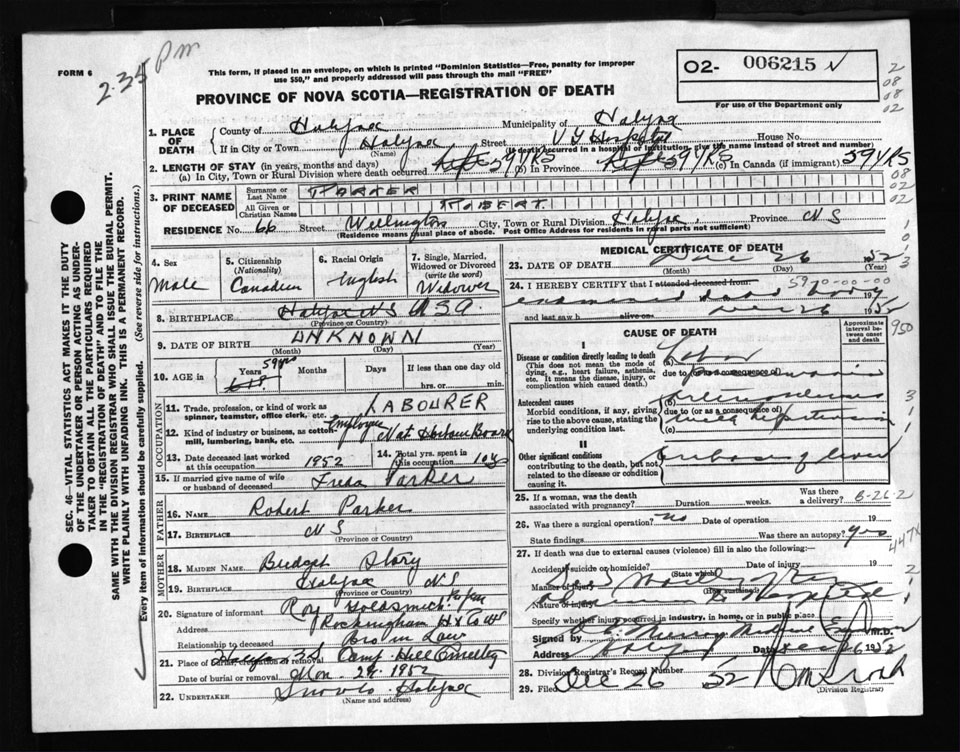 2.35 Pm
FORM 6
This form, if placed in an envelope, on which is printed "Dominion Statistics—Free, penalty for improper
use $50," and properly addressed will pass through the mail "FREE"
O2- 006215 N
For use of the Department only
PROVINCE OF NOVA SCOTIA—REGISTRATION OF DEATH
2
08
08
02
1. PLACE OF DEATH
County of Halifax Municipality of Halifax
If in City or Town Halifax Street V G Hospital House No.
(Name) (If death occurred in a hospital or institution, give the name instead of street and number)
2. LENGTH OF STAY (in years, months and days)
(a) In City, Town or Rural Division where death occurred Life 59 YRS (b) In Province Life 59 YRS (c) In Canada (if immigrant) 59 YRS
08
02
02
3. PRINT NAME OF DECEASED
Surname or Last Name PARKER
All Given or Christian Names ROBERT
RESIDENCE No. 66 Street Wellington City, Town or Rural Division Halifax, Province N S
(Residence means usual place of abode. Post Office Address for residents in rural parts not sufficient)
4. Sex
Male
5. Citizenship
(Nationality)
Canadian
6. Racial Origin
English
7. Single, Married, Widowed or Divorced
(write the word)
Widower
8. BIRTHPLACE Halifax NS
(Province or Country)
9. DATE OF BIRTH UNKNOWN
(Month) (Day) (Year)
10. AGE in
Years 59 yrs Months Days If less than one day old
hrs. or min.
OCCUPATION
11. Trade, profession, or kind of work as spinner, teamster, office clerk, etc. LABOURER
12. Kind of industry or business, as cotton-mill, lumbering, bank, etc. Employee Nat Harbour Board
13. Date deceased last worked at this occupation 1952
14. Total yrs. spent in this occupation 10 ys
15. If married give name of wife or husband of deceased Freda Parker
FATHER
16. NAME Robert Parker
17. BIRTHPLACE N S
(Province or Country)
MOTHER
18. MAIDEN NAME Story
19. BIRTHPLACE Halifax NS
(Province or Country)
20. Signature of informant Roy Goldsmith
Address Rockingham Hx Co
Relationship to deceased Bro in Law
21. Place of burial, cremation or removal Camp Hill Cemetery
Date of burial or removal Mon. 1952
22. UNDERTAKER Snows Halifax
(Name and address)
MEDICAL CERTIFICATE OF DEATH
23. DATE OF DEATH Dec 26 1952
(Month) (Day) (Year)
24. I HEREBY CERTIFY that I attended deceased from: 59 70-00-00
examined dead body 19
and last saw h alive on Dec 26 1952
CAUSE OF DEATH
Approximate interval between onset and death
950
I
Disease or condition directly leading to death
(This does not mean the mode of dying, e.g., heart failure, asthenia, etc. It means the disease, injury, or complication which caused death.)
Lobar
due to (or as a consequence of) pneumonia
Antecedent causes
Morbid conditions, if any, giving rise to the above cause, stating the underlying condition last.
Arteriosclerosis
due to (or as a consequence of)
(c) hypertension
II
Other significant conditions
contributing to the death, but not related to the disease or condition causing it.
of liver
25. If a woman, was the death associated with pregnancy? Duration weeks. Was there a delivery?
8-26-2
26. Was there a surgical operation? no Date of operation 19
State findings Was there an autopsy? Yes
447X
27. If death was due to external causes (violence) fill in also the following:
Accident, suicide or homicide? Date of injury 19
(State which)
Manner of injury
(How sustained)
Nature of injury
Specify whether injured occurred in industry, in home, or in public place
Signed by Medical Examiner M.D.
Address Halifax Date Dec 26 1952
28. Division Registrar's Record Number
29. Filed Dec 26 52
(Division Registrar)
SEC. 46—VITAL STATISTICS ACT MAKES IT THE DUTY
OF THE UNDERTAKER OR PERSON ACTING AS UNDER-
TAKER TO OBTAIN ALL THE PARTICULARS REQUIRED
IN THE "REGISTRATION OF DEATH" AND TO FILE THE
SAME WITH THE DIVISION REGISTRAR WHO SHALL ISSUE THE BURIAL PERMIT.
WRITE PLAINLY WITH UNFADING INK. THIS IS A PERMANENT RECORD.
Every item of information should be carefully supplied. (See reverse side for instructions.)